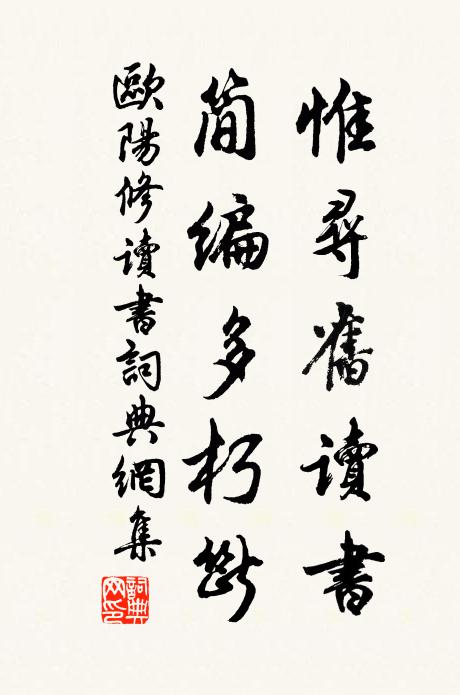 惟尋舊讀書
簡編多朽斷
歐陽修讀書詞典網集
詞典网印